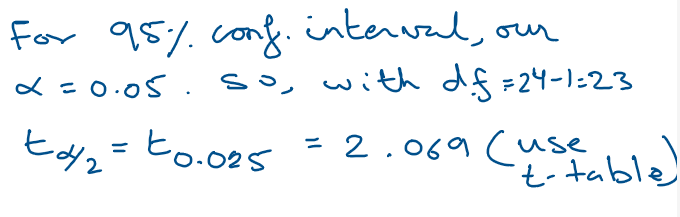 For 95%. conf. interval, our
α = 0.05. So, with df = 24-1=23
t_α/2 = t_0.025 = 2.069 (use
t-table)